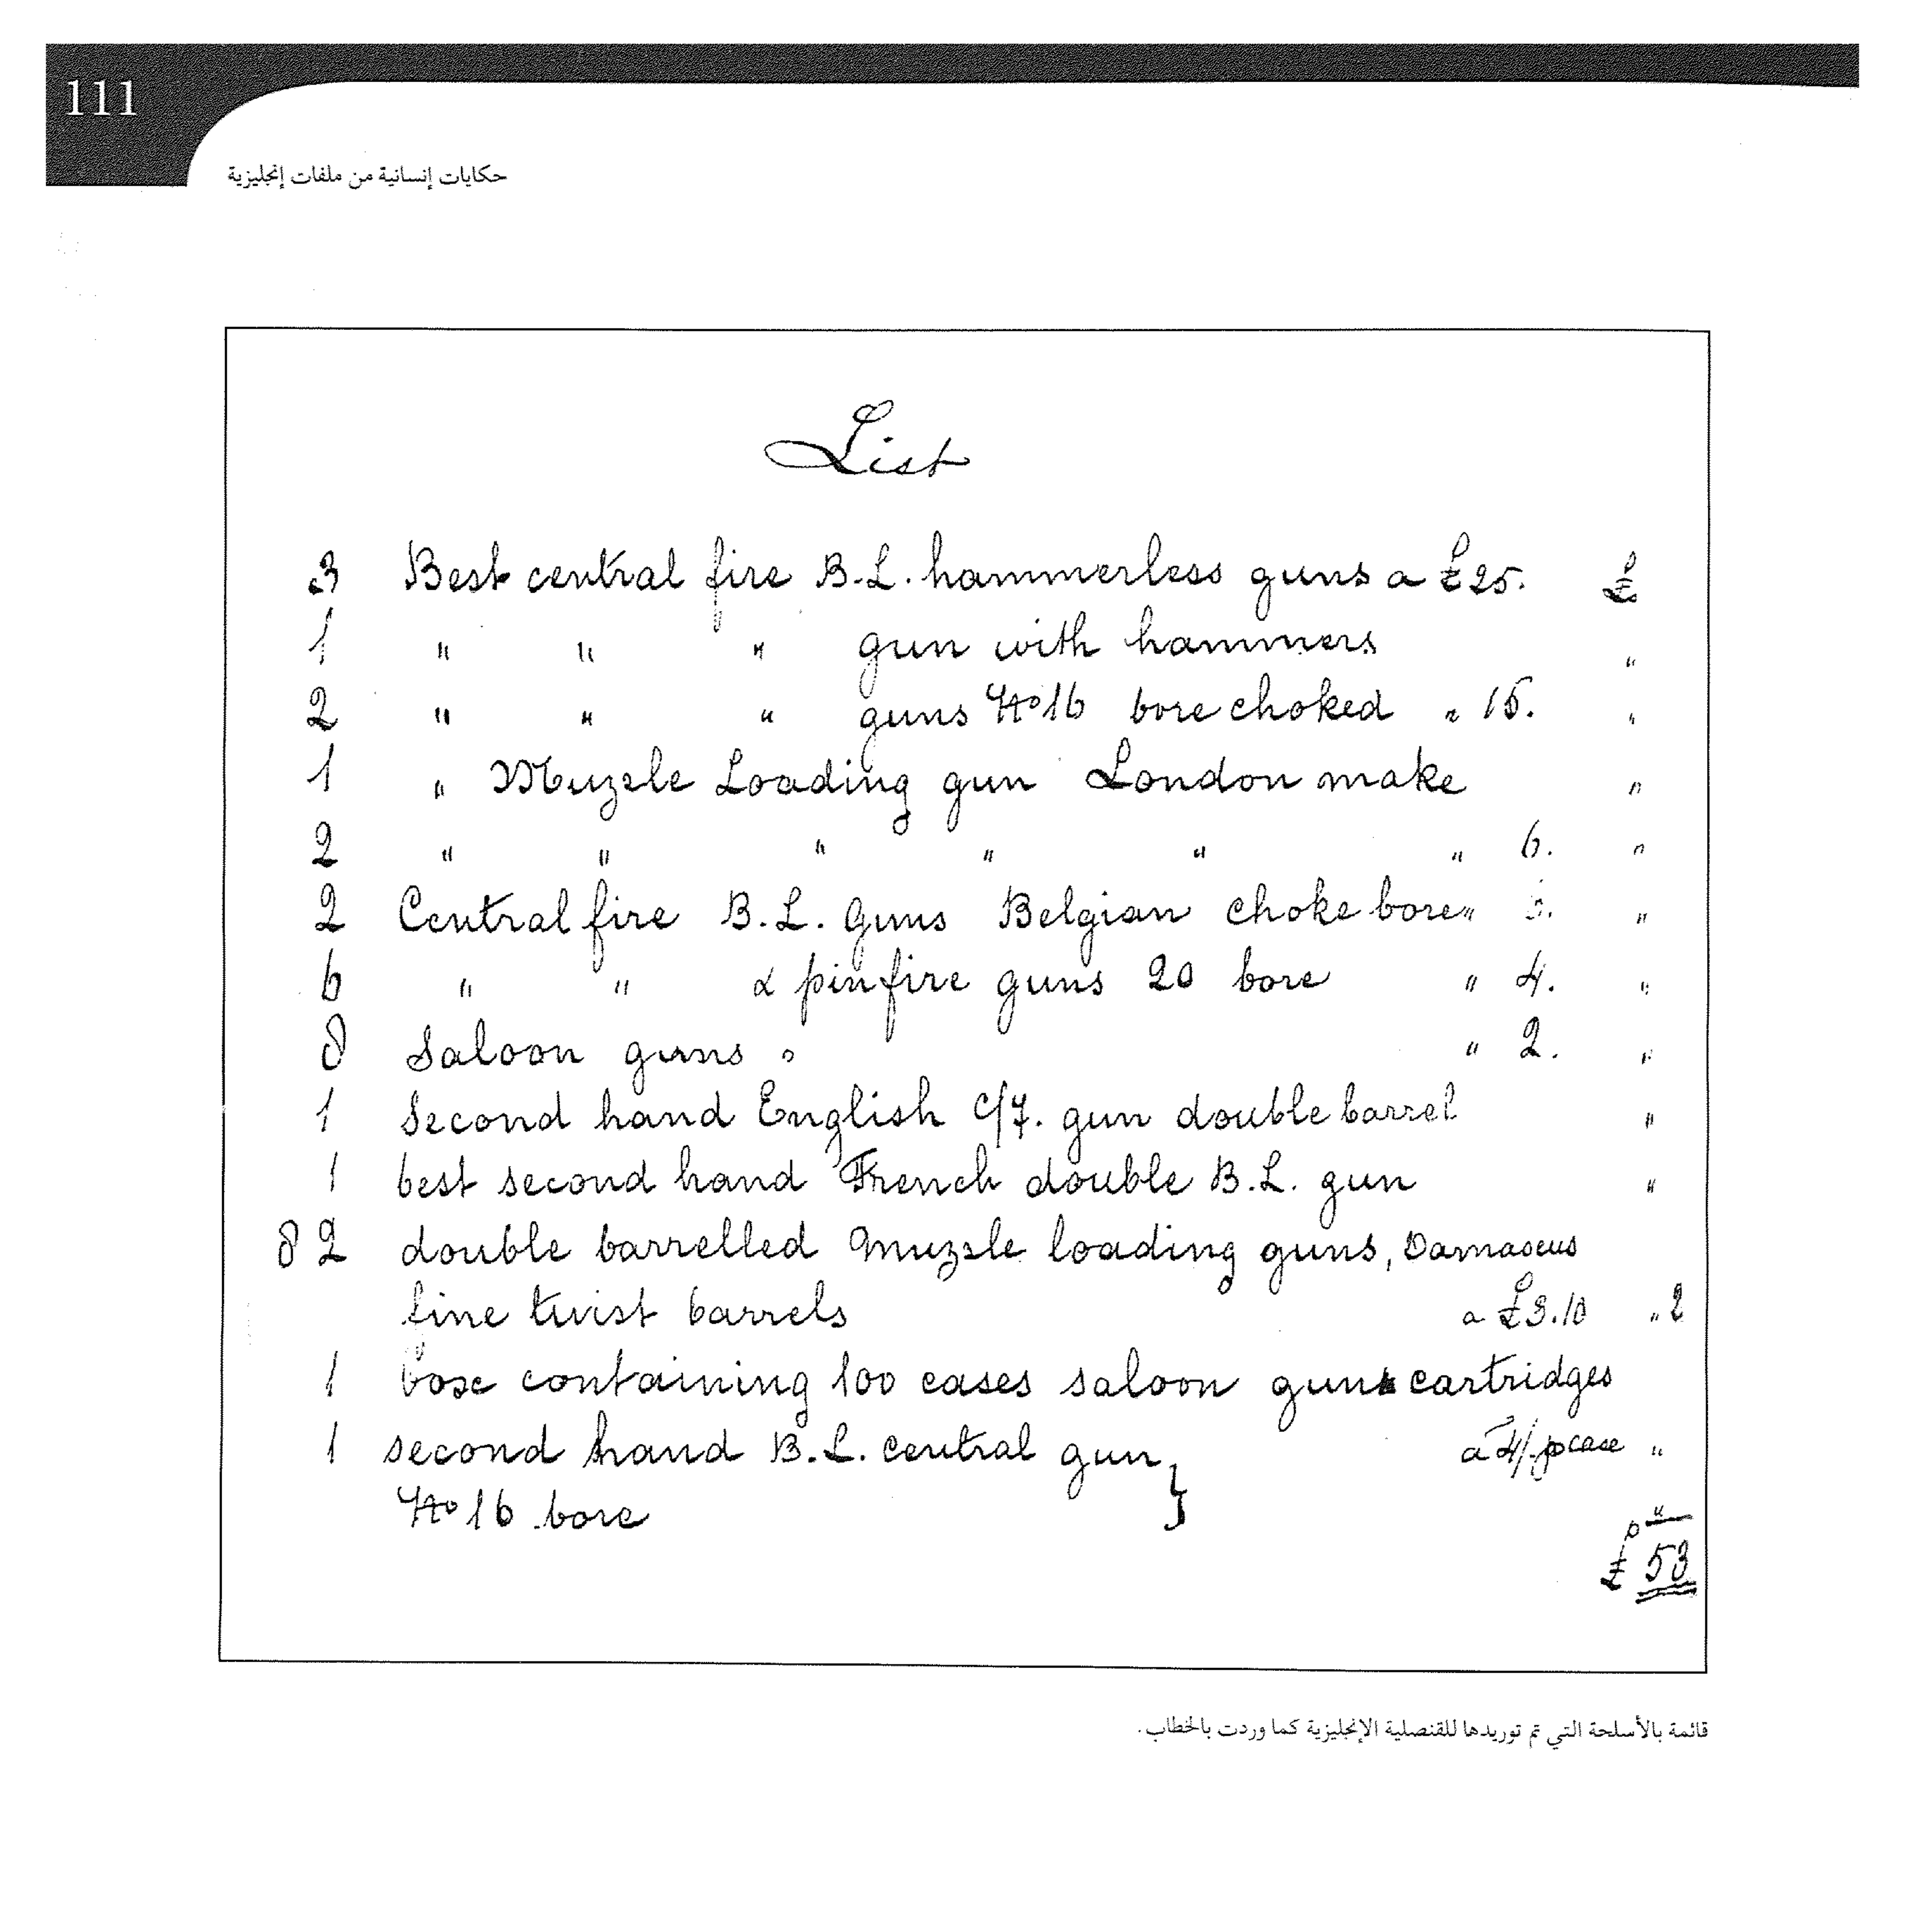 111
حكايات إنسانية من ملفات إنجليزية
List
3 Best central fire B.L. hammerless guns a £25. £
1 " " " gun with hammers "
2 " " " guns No 16 bore choked " 15. "
1 " Muzzle Loading gun London make "
2 " " " " " " 6. "
2 Central fire B.L. Guns Belgian choke bore " "
6 " " & pinfire guns 20 bore " 4. "
8 Saloon guns " " 2. "
1 Second hand English C/F. gun double barrel "
1 best second hand French double B.L. gun "
82 double barrelled Muzzle loading guns, Damascus
fine twist barrels a £3.10 " 2
1 box containing 100 cases saloon guns cartridges
1 second hand B.L. central gun } a 4/- p case "
No 16 bore "
£ 53
قائمة بالأسلحة التي تم توريدها للقنصلية الإنجليزية كما وردت بالخطاب.